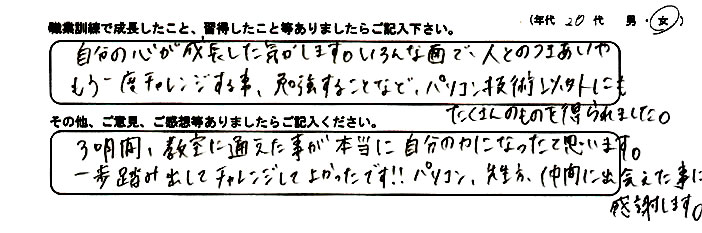 職業訓練で成長したこと、習得したこと等ありましたらご記入下さい。 (年代 20 代 男・女)
自分の心が成長した気がします。いろんな面で、人とのつきあいや
もう一度チャレンジする事、勉強することなど、パソコン技術以外にも
たくさんのものを得られました。
その他、ご意見、ご感想等ありましたらご記入ください。
3ヶ月間、教室に通えた事が本当に自分の力になったと思います。
一歩踏み出してチャレンジしてよかったです!! パソコン、先生方、仲間に出会えた事に
感謝します。